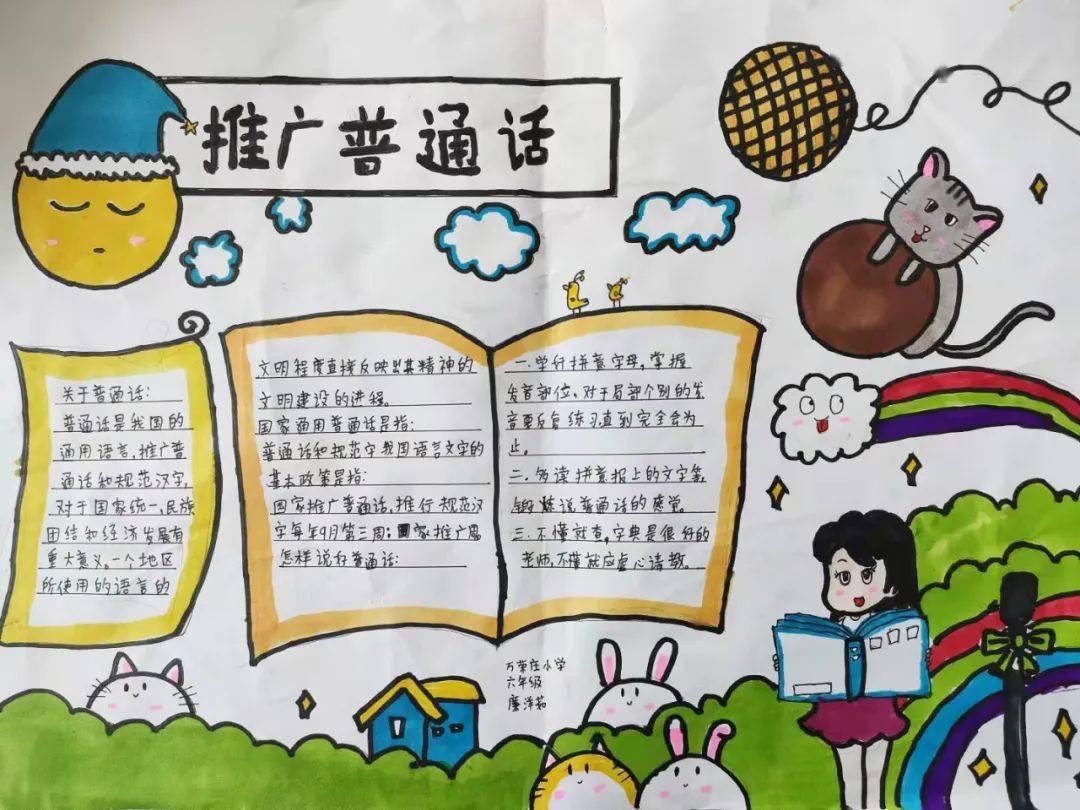 推广普通话
关于普通话:
普通话是我国的
通用语言,推广普
通话和规范汉字,
对于国家统一、民族
团结和经济发展有
重大意义。一个地区
所使用的语言的
文明程度直接反映出其精神的
文明建设的进程。
国家通用普通话是指:
普通话和规范字我国语言文字的
基本政策是指:
国家推广普通话,推行规范汉
字每年9月第三周:国家推广周
怎样说好普通话:
一.学好拼音字母,掌握
发音部位、对于局部个别的发
音要反复练习,直到完全会为
止。
二.多读拼音报上的文字等,
锻炼说普通话的感觉。
三.不懂就查,字典是很好的
老师,不懂就应虚心请教。
万荣庄小学
六年级